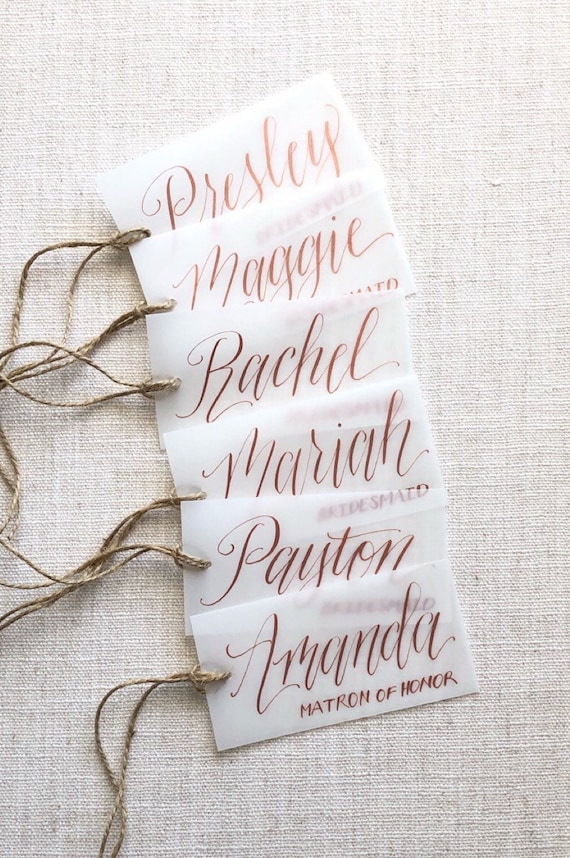 Presley
BRIDESMAID
Maggie
BRIDESMAID
Rachel
BRIDESMAID
Mariah
BRIDESMAID
Payton
BRIDESMAID
Amanda
MATRON OF HONOR